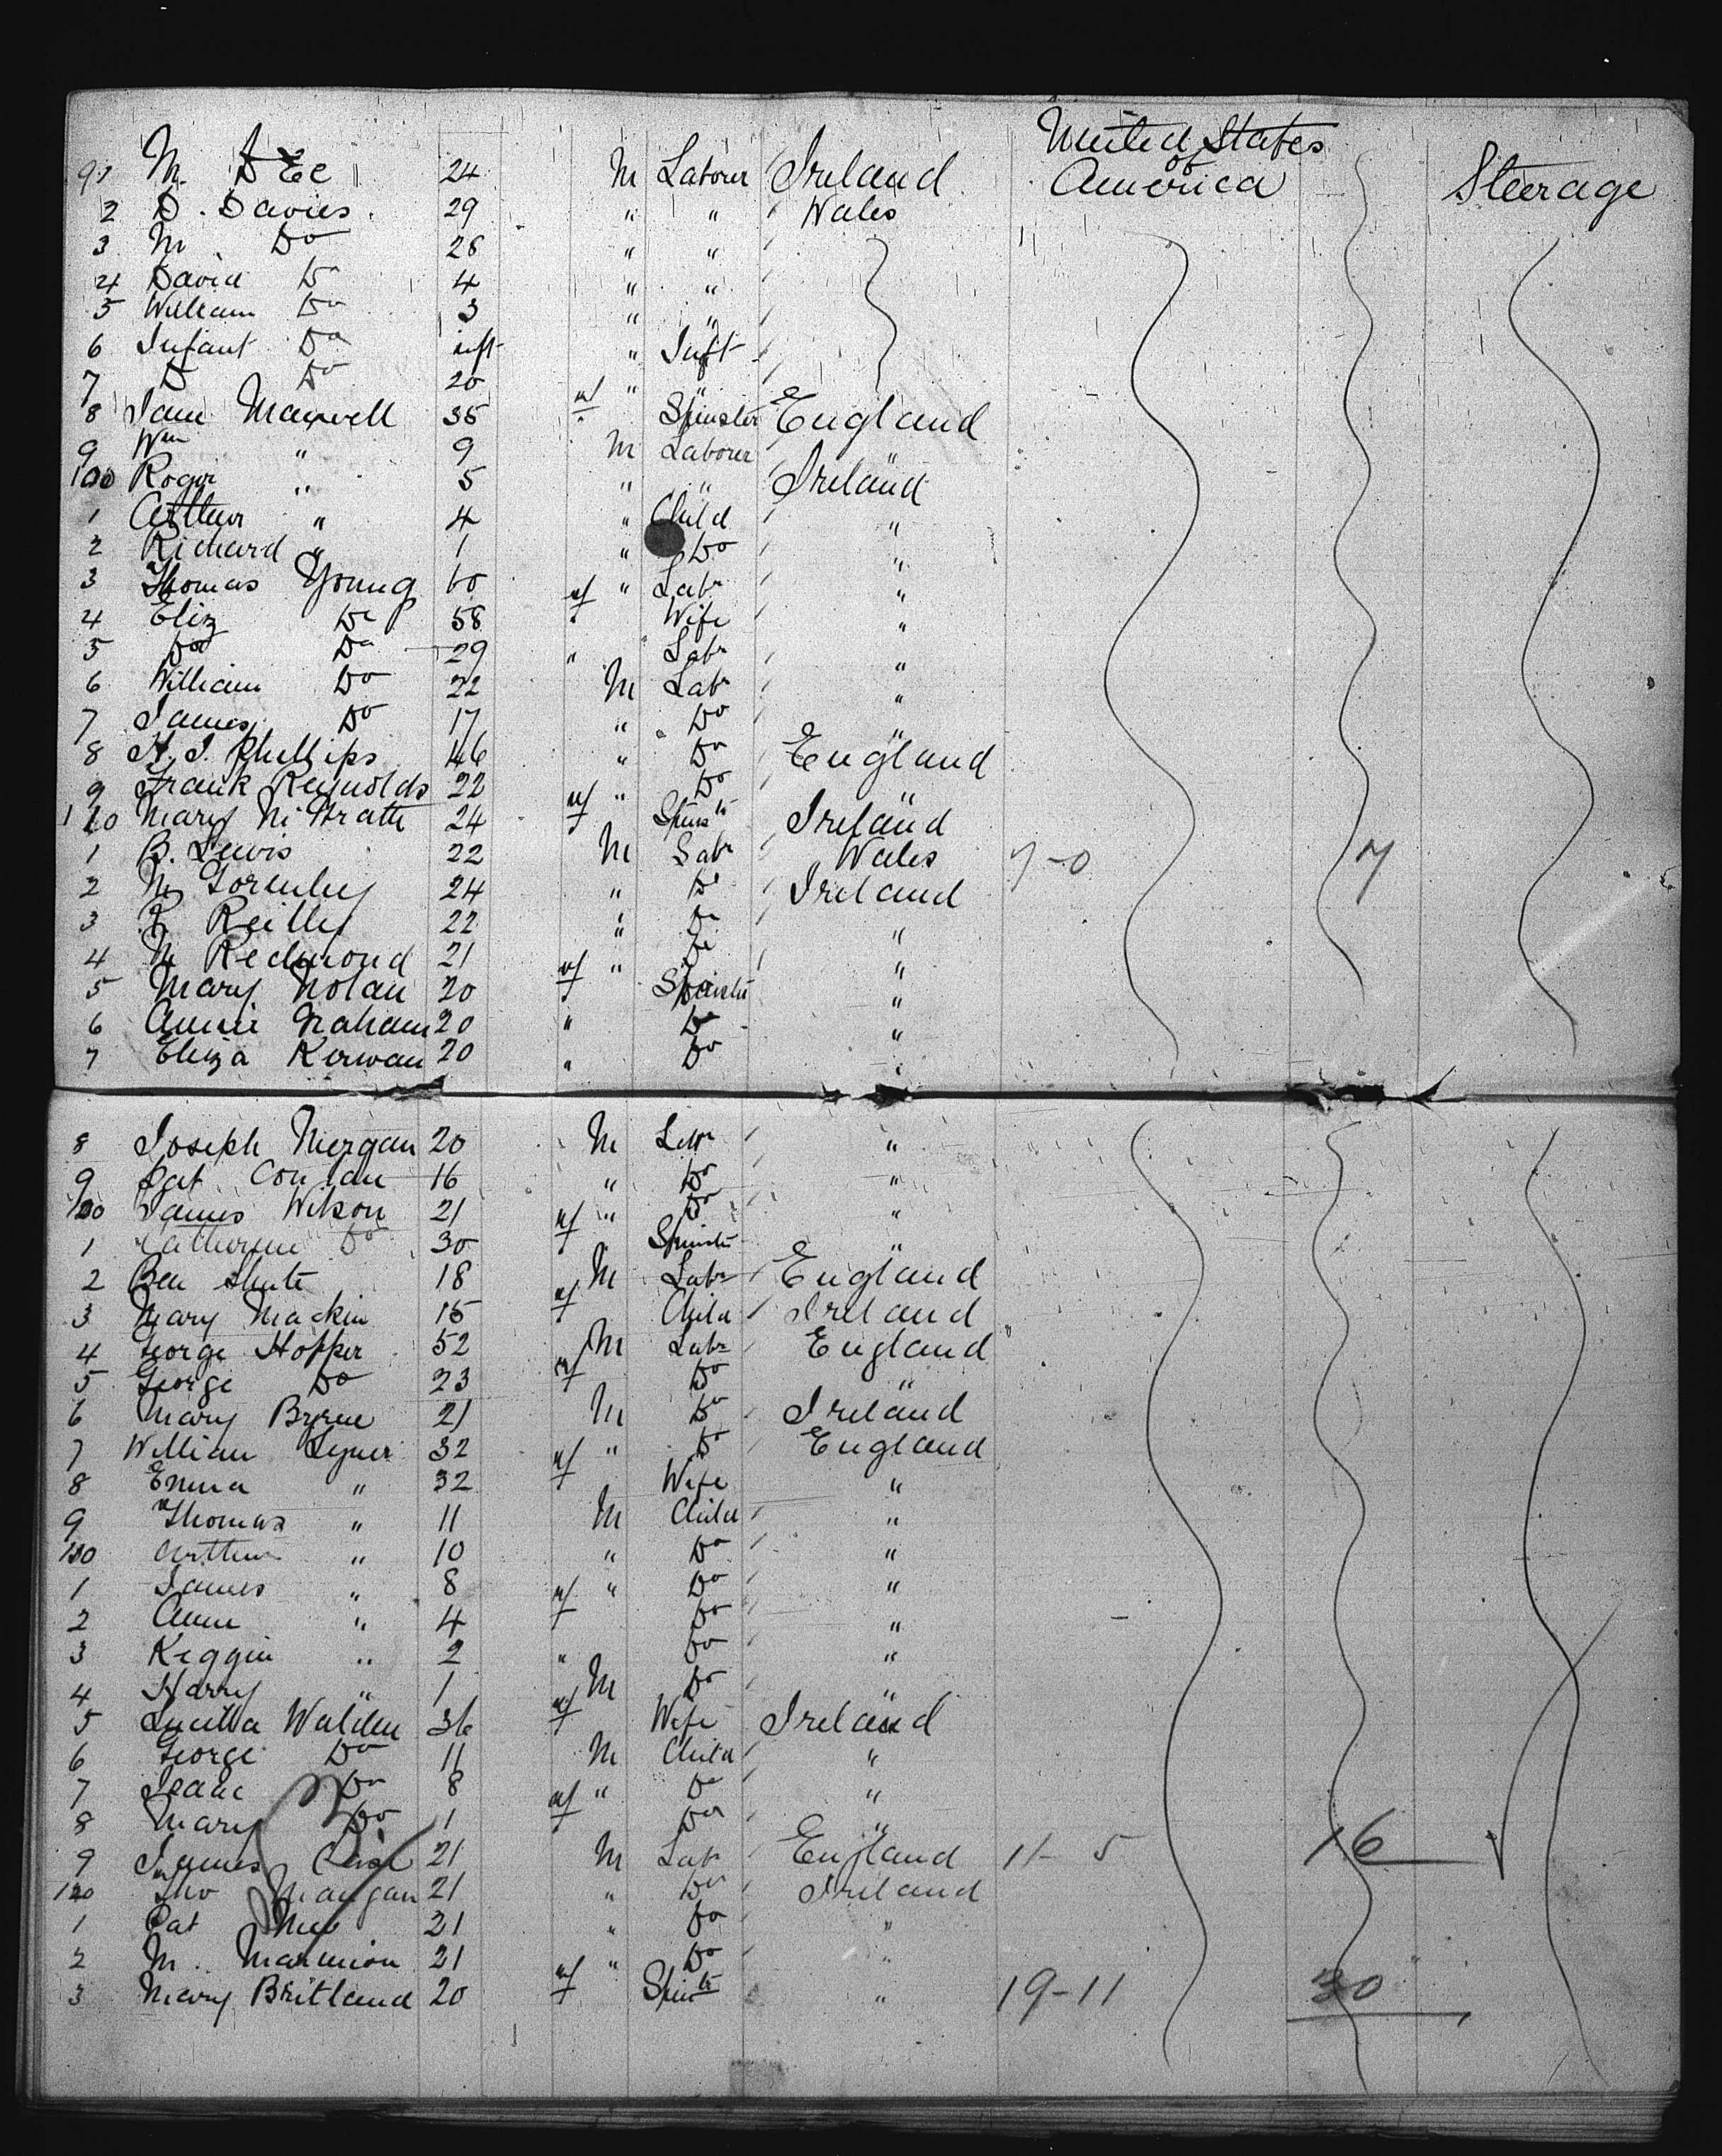 United States
91 M. Lee 24 M Laborer Ireland of America Steerage
2 D. Davies 29 " " Wales
3 M Do 28 " "
4 David Do 4 " "
5 William Do 3 " "
6 Infant Do inft " Inft
7 D Do 20 " "
8 Jane Maxwell 35 Spinster England
9 Wm " 9 M Laborer "
100 Roger " 5 " " Ireland
1 Arthur " 4 " Child "
2 Richard " 1 " Do "
3 Thomas Young 60 " Labr "
4 Eliz Do 58 f Wife "
5 Do Do 29 " Labr "
6 William Do 22 M Labr "
7 James Do 17 " Do "
8 H. J. Phillips 46 " Do England
9 Frank Reynolds 22 " Do "
110 Mary 24 f Spinstr Ireland
1 B. Lewis 22 M Labr Wales 7-0 7
2 M 24 " Do Ireland
3 Reilly 22 " Do "
4 M Redmond 21 " Do "
5 Mary Nolan 20 f Spinster "
6 Annie 20 " Do "
7 Eliza Kerwan 20 " Do "
8 Joseph Morgan 20 M Labr "
9 Pat Conlan 16 " Do "
120 James Wilson 21 " Do "
1 Catherine Do 30 f Spinster "
2 Ben Shute 18 M Labr England
3 Mary Mackin 15 f Child Ireland
4 George Hopper 52 M Labr England
5 George Do 23 Do "
6 Mary Byrne 21 M Do Ireland
7 William 32 " Do England
8 Emma " 32 f Wife "
9 Thomas " 11 M Child "
130 Arthur " 10 " Do "
1 James " 8 " Do "
2 Ann " 4 f Do "
3 " 2 " Do "
4 Harry " 1 M Do "
5 Walden 36 f Wife Ireland
6 George Do 11 M Child "
7 Isaac Do 8 " Do "
8 Mary Do 1 f Do "
9 James 21 M Labr England 11-5 16
Tho Mangan 21 " Do Ireland
1 Pat 21 " Do "
2 M. Marmion 21 " Do "
3 Mary Britland 20 f Spinstr " 19-11 30